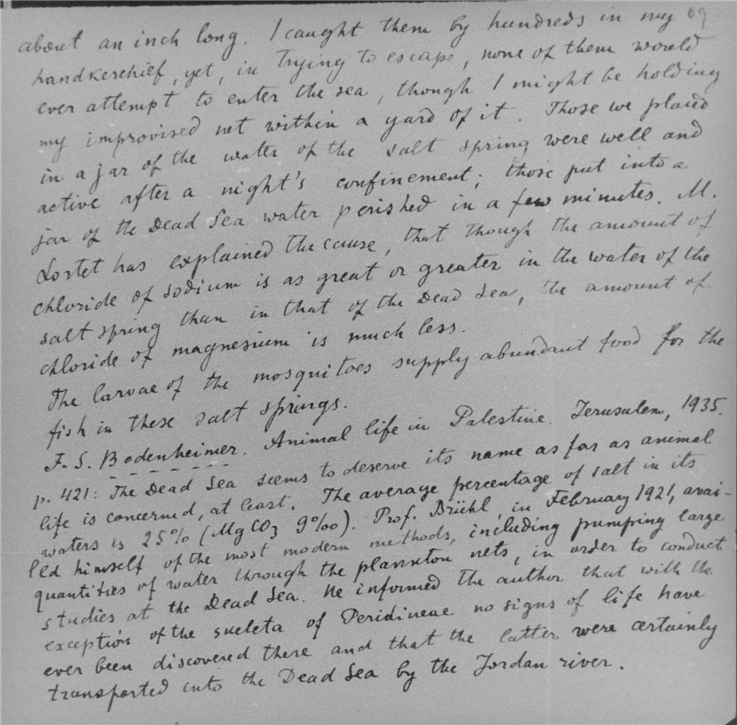 69
about an inch long. I caught them by hundreds in my
handkerchief, yet, in trying to escape, none of them would
ever attempt to enter the sea, though I might be holding
my improvised net within a yard of it. Those we placed
in a jar of the water of the salt spring were well and
active after a night's confinement; those put into a
jar of the Dead Sea water perished in a few minutes. M.
Lortet has explained the cause, that though the amount of
chloride of sodium is as great or greater in the water of the
salt spring than in that of the Dead Sea, the amount of
chloride of magnesium is much less.
The larvae of the mosquitoes supply abundant food for the
fish in these salt springs.
F. S. Bodenheimer. Animal life in Palestine. Jerusalem, 1935.
p. 421: The Dead Sea seems to deserve its name as far as animal
life is concerned, at least. The average percentage of salt in its
waters is 25% (MgCO3 9‰). Prof. Brühl, in February 1921, avai-
led himself of the most modern methods, including pumping large
quantities of water through the plannton nets, in order to conduct
studies at the Dead Sea. He informed the author that with the
exception of the sueleta of Peridineae no signs of life have
ever been discovered there and that the latter were certainly
transported into the Dead Sea by the Jordan river.